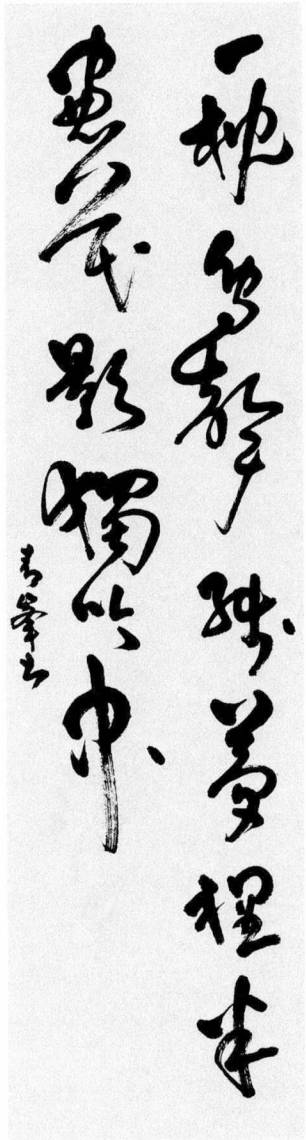 一枕鳥聲殘夢裡半
窓花影獨吟中
青峯書